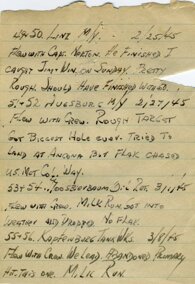 49+50. Linz M/Y. 2/25/45
Flew with Capt. Norton. He finished I
caught Jim + Win. on Sunday. Betty
Rough. Should have finished
51+52 Augsburg M/Y 2/27/45
Flew with Crew. Rough Target
Got Biggest Hole ever. Tried to
Land at Ancona But Flak chased
us. Not Col. Way.
53+54. Moosbierbaum Oil Ref. 3/1/45
Flew with Crew. Milk Run Got into
Weather and dropped No Flak.
55+56. Kapfenburg Tank Wks. 3/8/45
Flew with Crew. We Lead. Abandoned Primary
Hit This one. Milk Run.